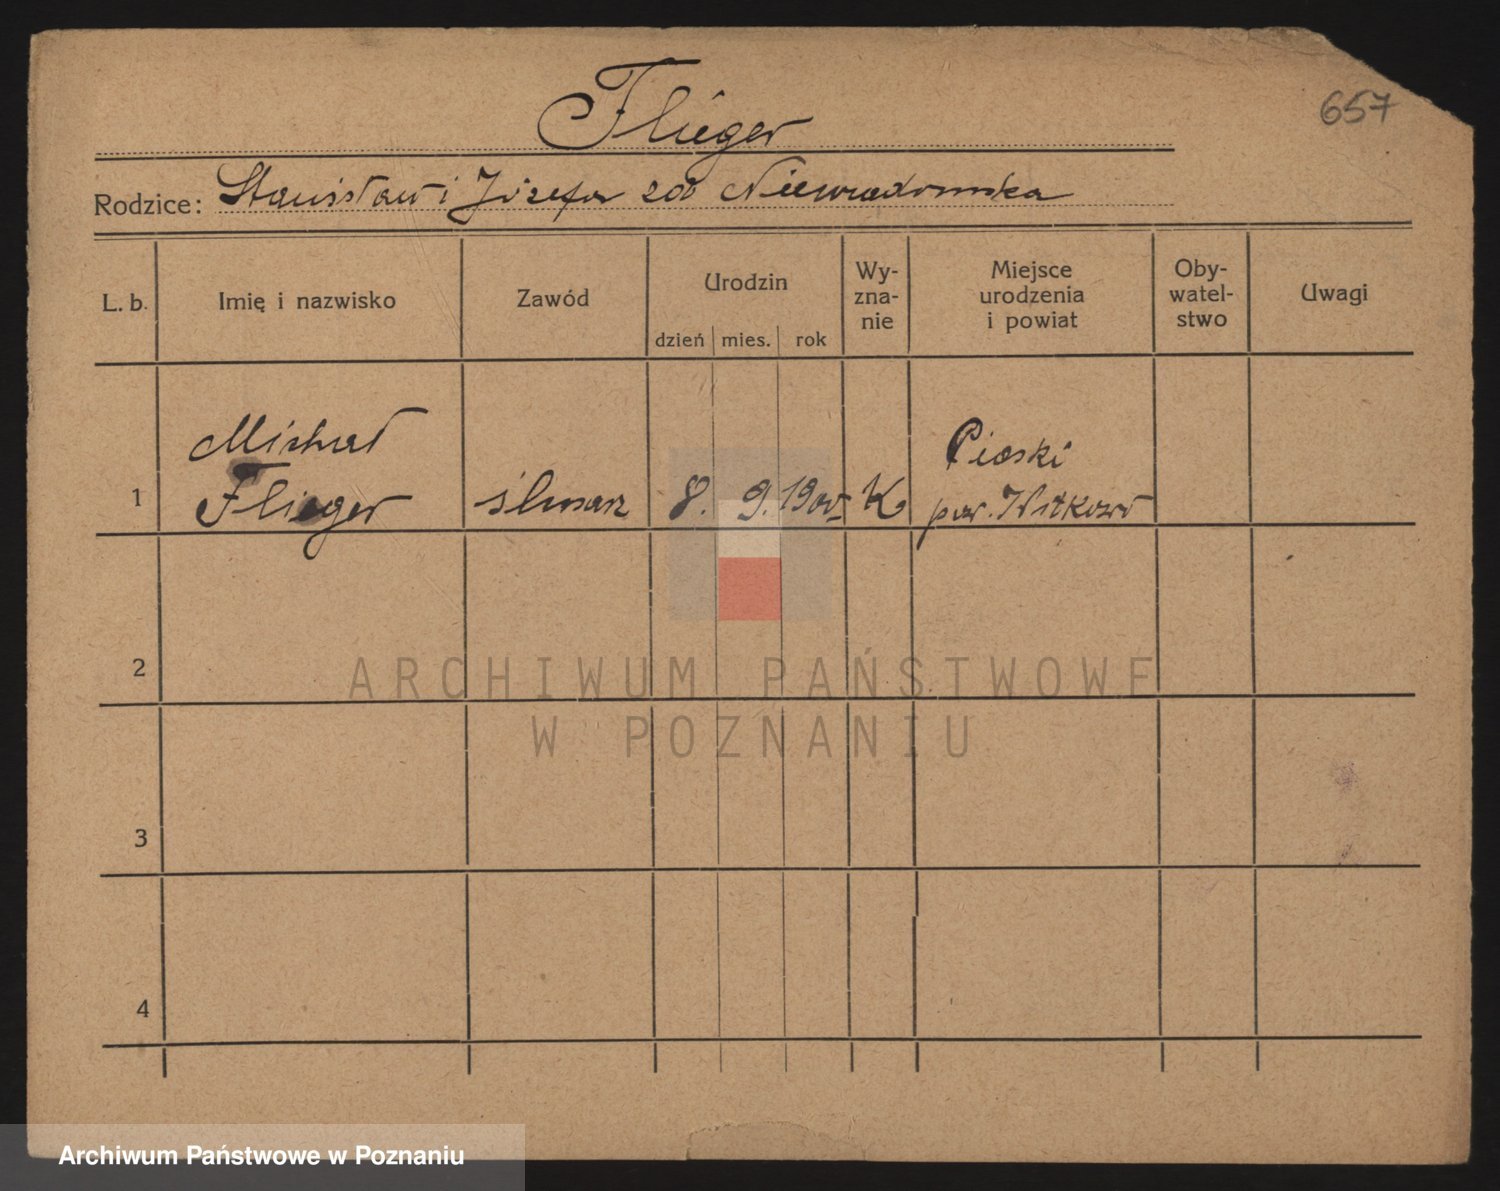 657
Flieger
Rodzice: Stanisław i Józefa zd Niewiadomska
L. b.
Imię i nazwisko
Zawód
Urodzin
dzień mies. rok
Wy-
zna-
nie
Miejsce
urodzenia
i powiat
Oby-
watel-
stwo
Uwagi
1
Michał
Flieger
ślusarz
8. 9. 1900
K
Piaski
pow. Witkowo
2
3
4
ARCHIWUM PAŃSTWOWE
W POZNANIU
Archiwum Państwowe w Poznaniu